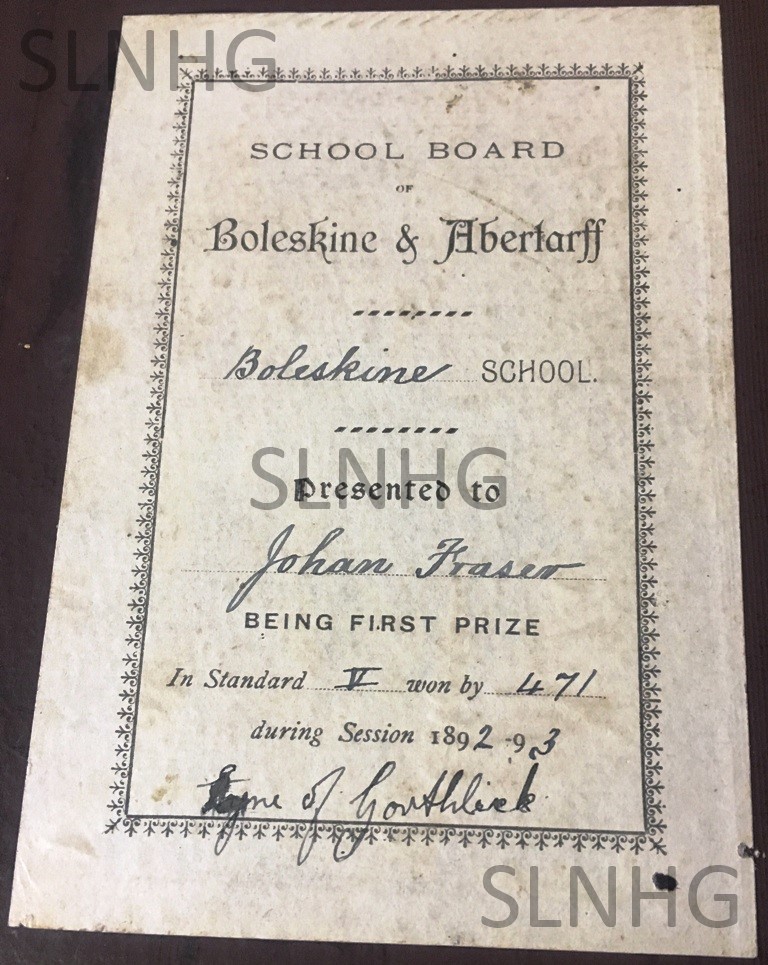 SLNHG
SCHOOL BOARD
OF
Boleskine & Abertarff
Boleskine SCHOOL.
SLNHG
Presented to
Johan Fraser
BEING FIRST PRIZE
In Standard V won by 471
during Session 1892-93
of Gorthlick
SLNHG